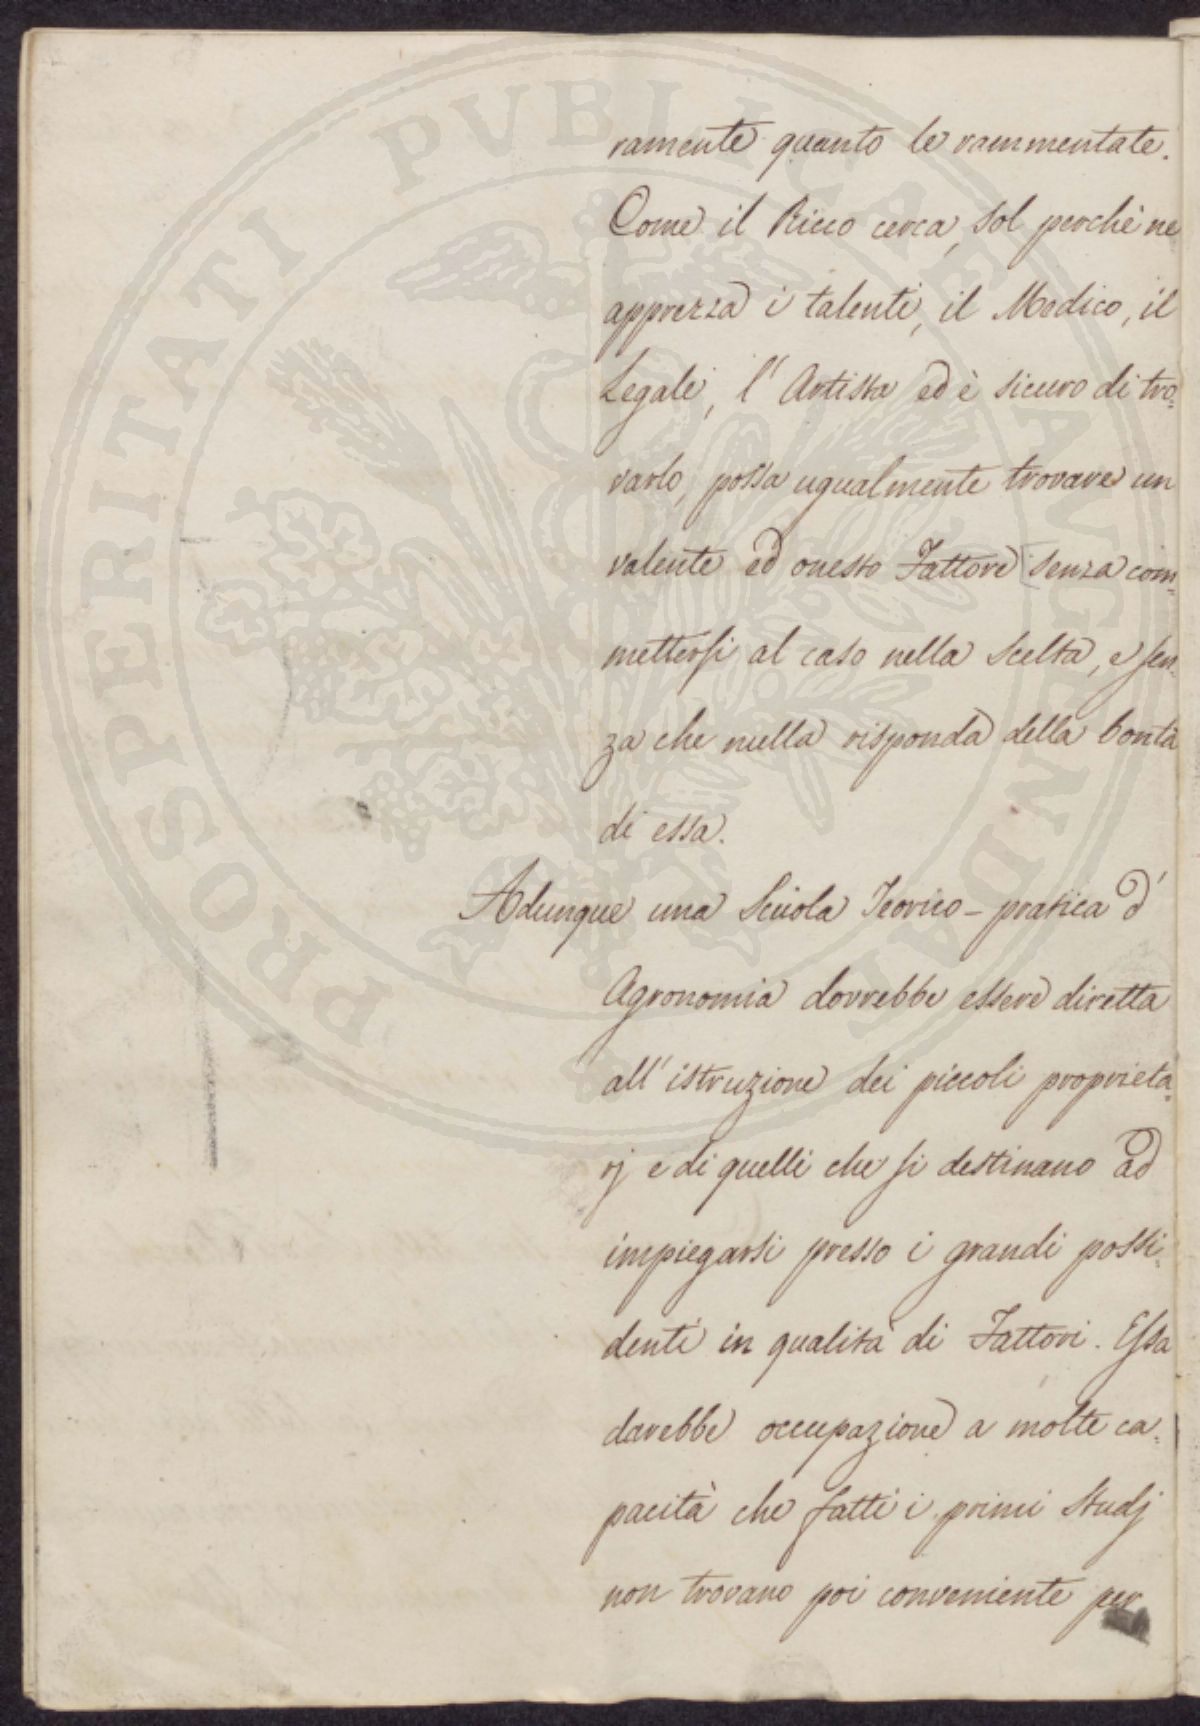 PROSPERITATI PVBLICAE AVGENDAE
ramente quanto le rammentate.
Come il Ricco cerca, sol perchè ne
apprezza i talenti, il Medico, il
Legale, l'Artista ed è sicuro di tro=
varlo, possa ugualmente trovare un
valente ed onesto Fattore senza com=
mettersi al caso nella scelta, e sen=
za che nulla risponda della bontà
di essa.
Adunque una Scuola Teorico-pratica d'
Agronomia dovrebbe essere diretta
all'istruzione dei piccoli proprieta=
rj e di quelli che si destinano ad
impiegarsi presso i grandi possi=
denti in qualità di Fattori. Essa
darebbe occupazione a molte ca=
pacità che fatti i primi Studj
non trovano poi conveniente per